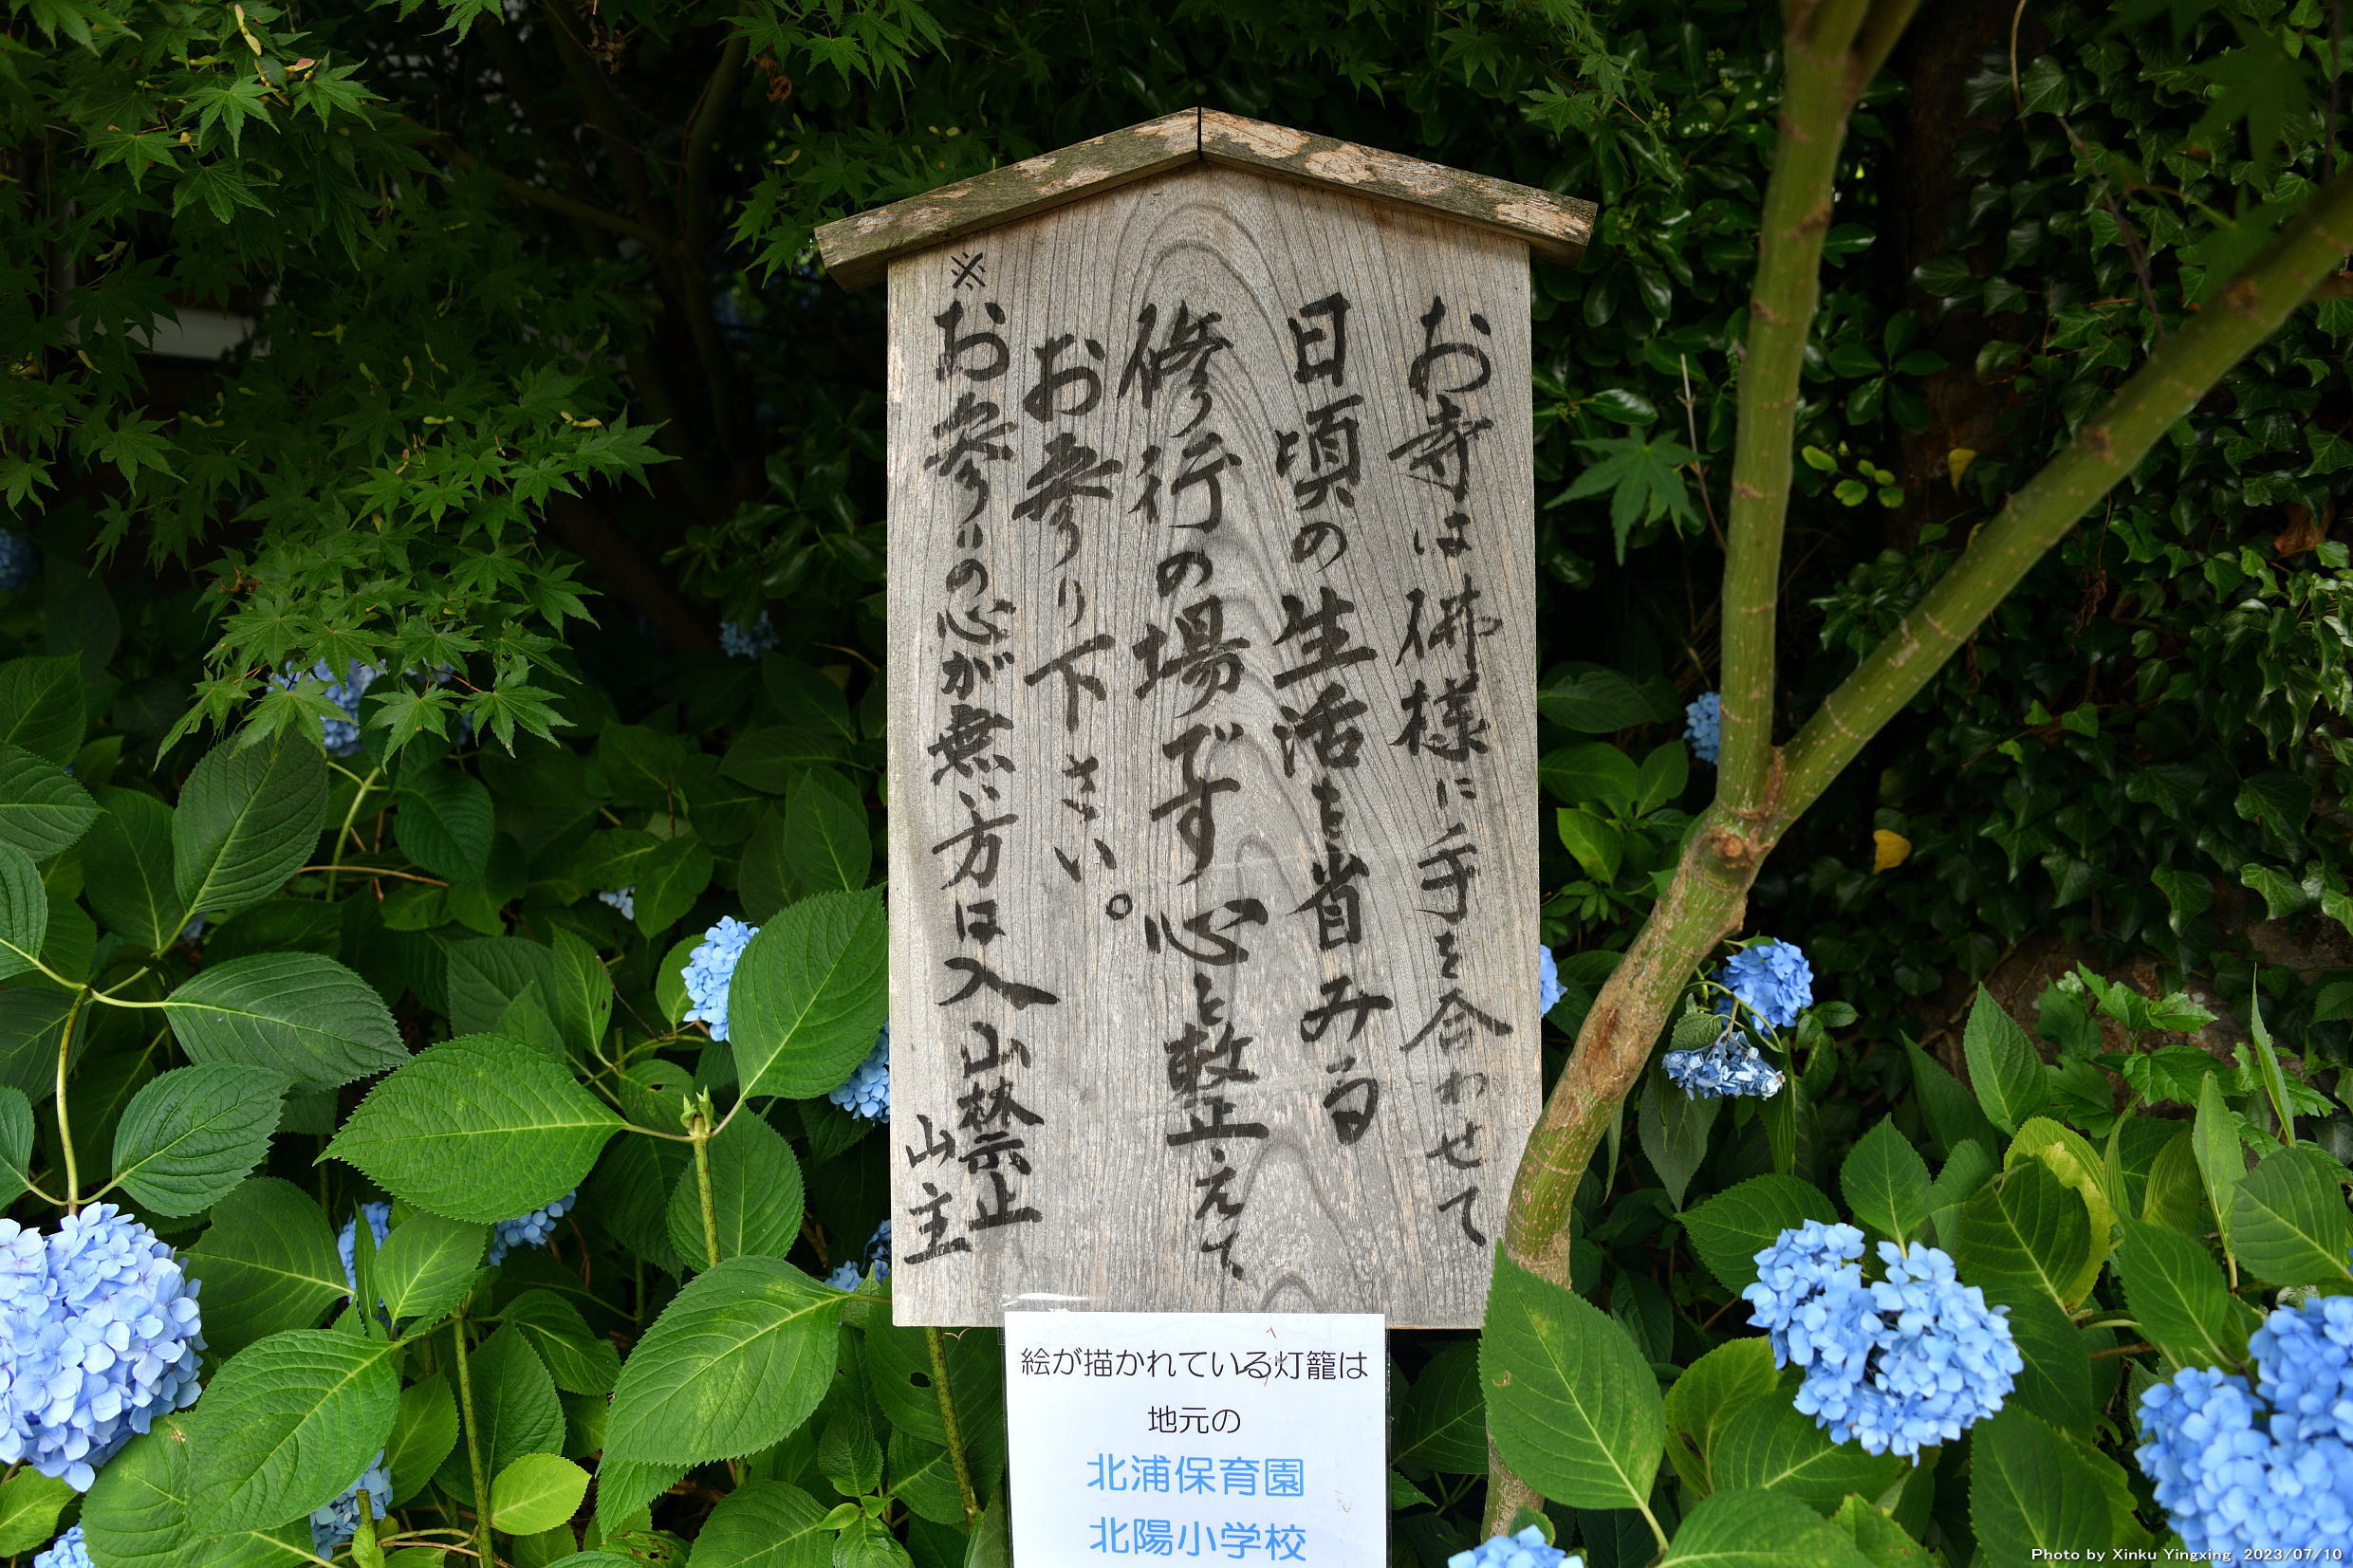 お寺は佛様に手を合わせて
日頃の生活を省みる
修行の場です心を整えて
お参り下さい。
※お参りの心が無い方は入山禁止
山主
絵が描かれている灯籠は
地元の
北浦保育園
北陽小学校
Photo by Xinku Yingxing 2023/07/10